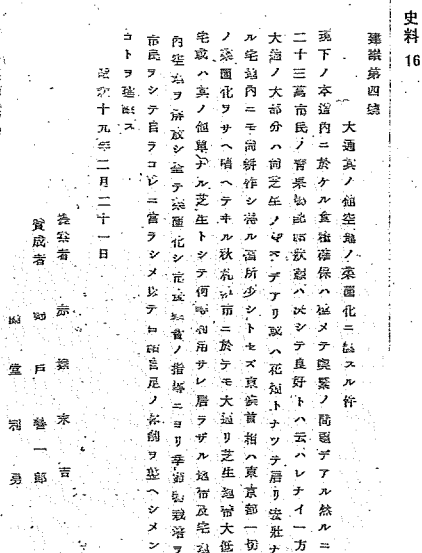 史料 16
建議第四號
大通其ノ他空地ノ菜園化ニ關スル件
現下ノ本道内ニ於ケル食糧確保ハ極メテ喫緊ノ問題デアル然ルニ
二十三萬市民ノ青果物配給状態ハ決シテ良好トハ云ハレナイ一方
大通ノ大部分ハ尚芝生ノママデアリ或ハ花壇トナツテ居リ宏壯ナ
ル宅地内ニモ尚耕作シ得ル箇所少シトセズ東條首相ハ東京都一切
ノ菜園化ヲサヘ唱ヘテヰル秋札幌市ニ於テモ大通リ芝生地帯大低
宅或ハ其ノ他單ナル芝生トシテ何等利用サレ居ラザル地帯及宅地
内空地ヲ解放シ全テ菜園化シ市農會ノ指導ニヨリ栽培ヲ
市民ヲシテ自ラコレニ當ラシメ以テ自給自足ノ ヲ ヘシメン
コトヲ建議ス
昭和十九年二月二十一日
提案者 末吉
賛成者 戸 一郎
堂 利 勇